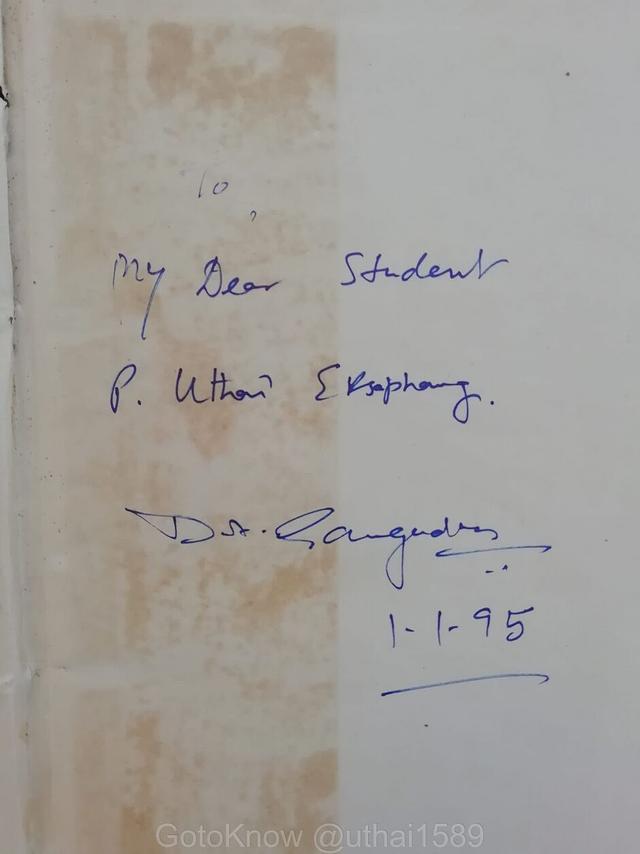 To,
My Dear Student
P. Uthai Eksaphang.
1-1-95
GotoKnow @uthai1589